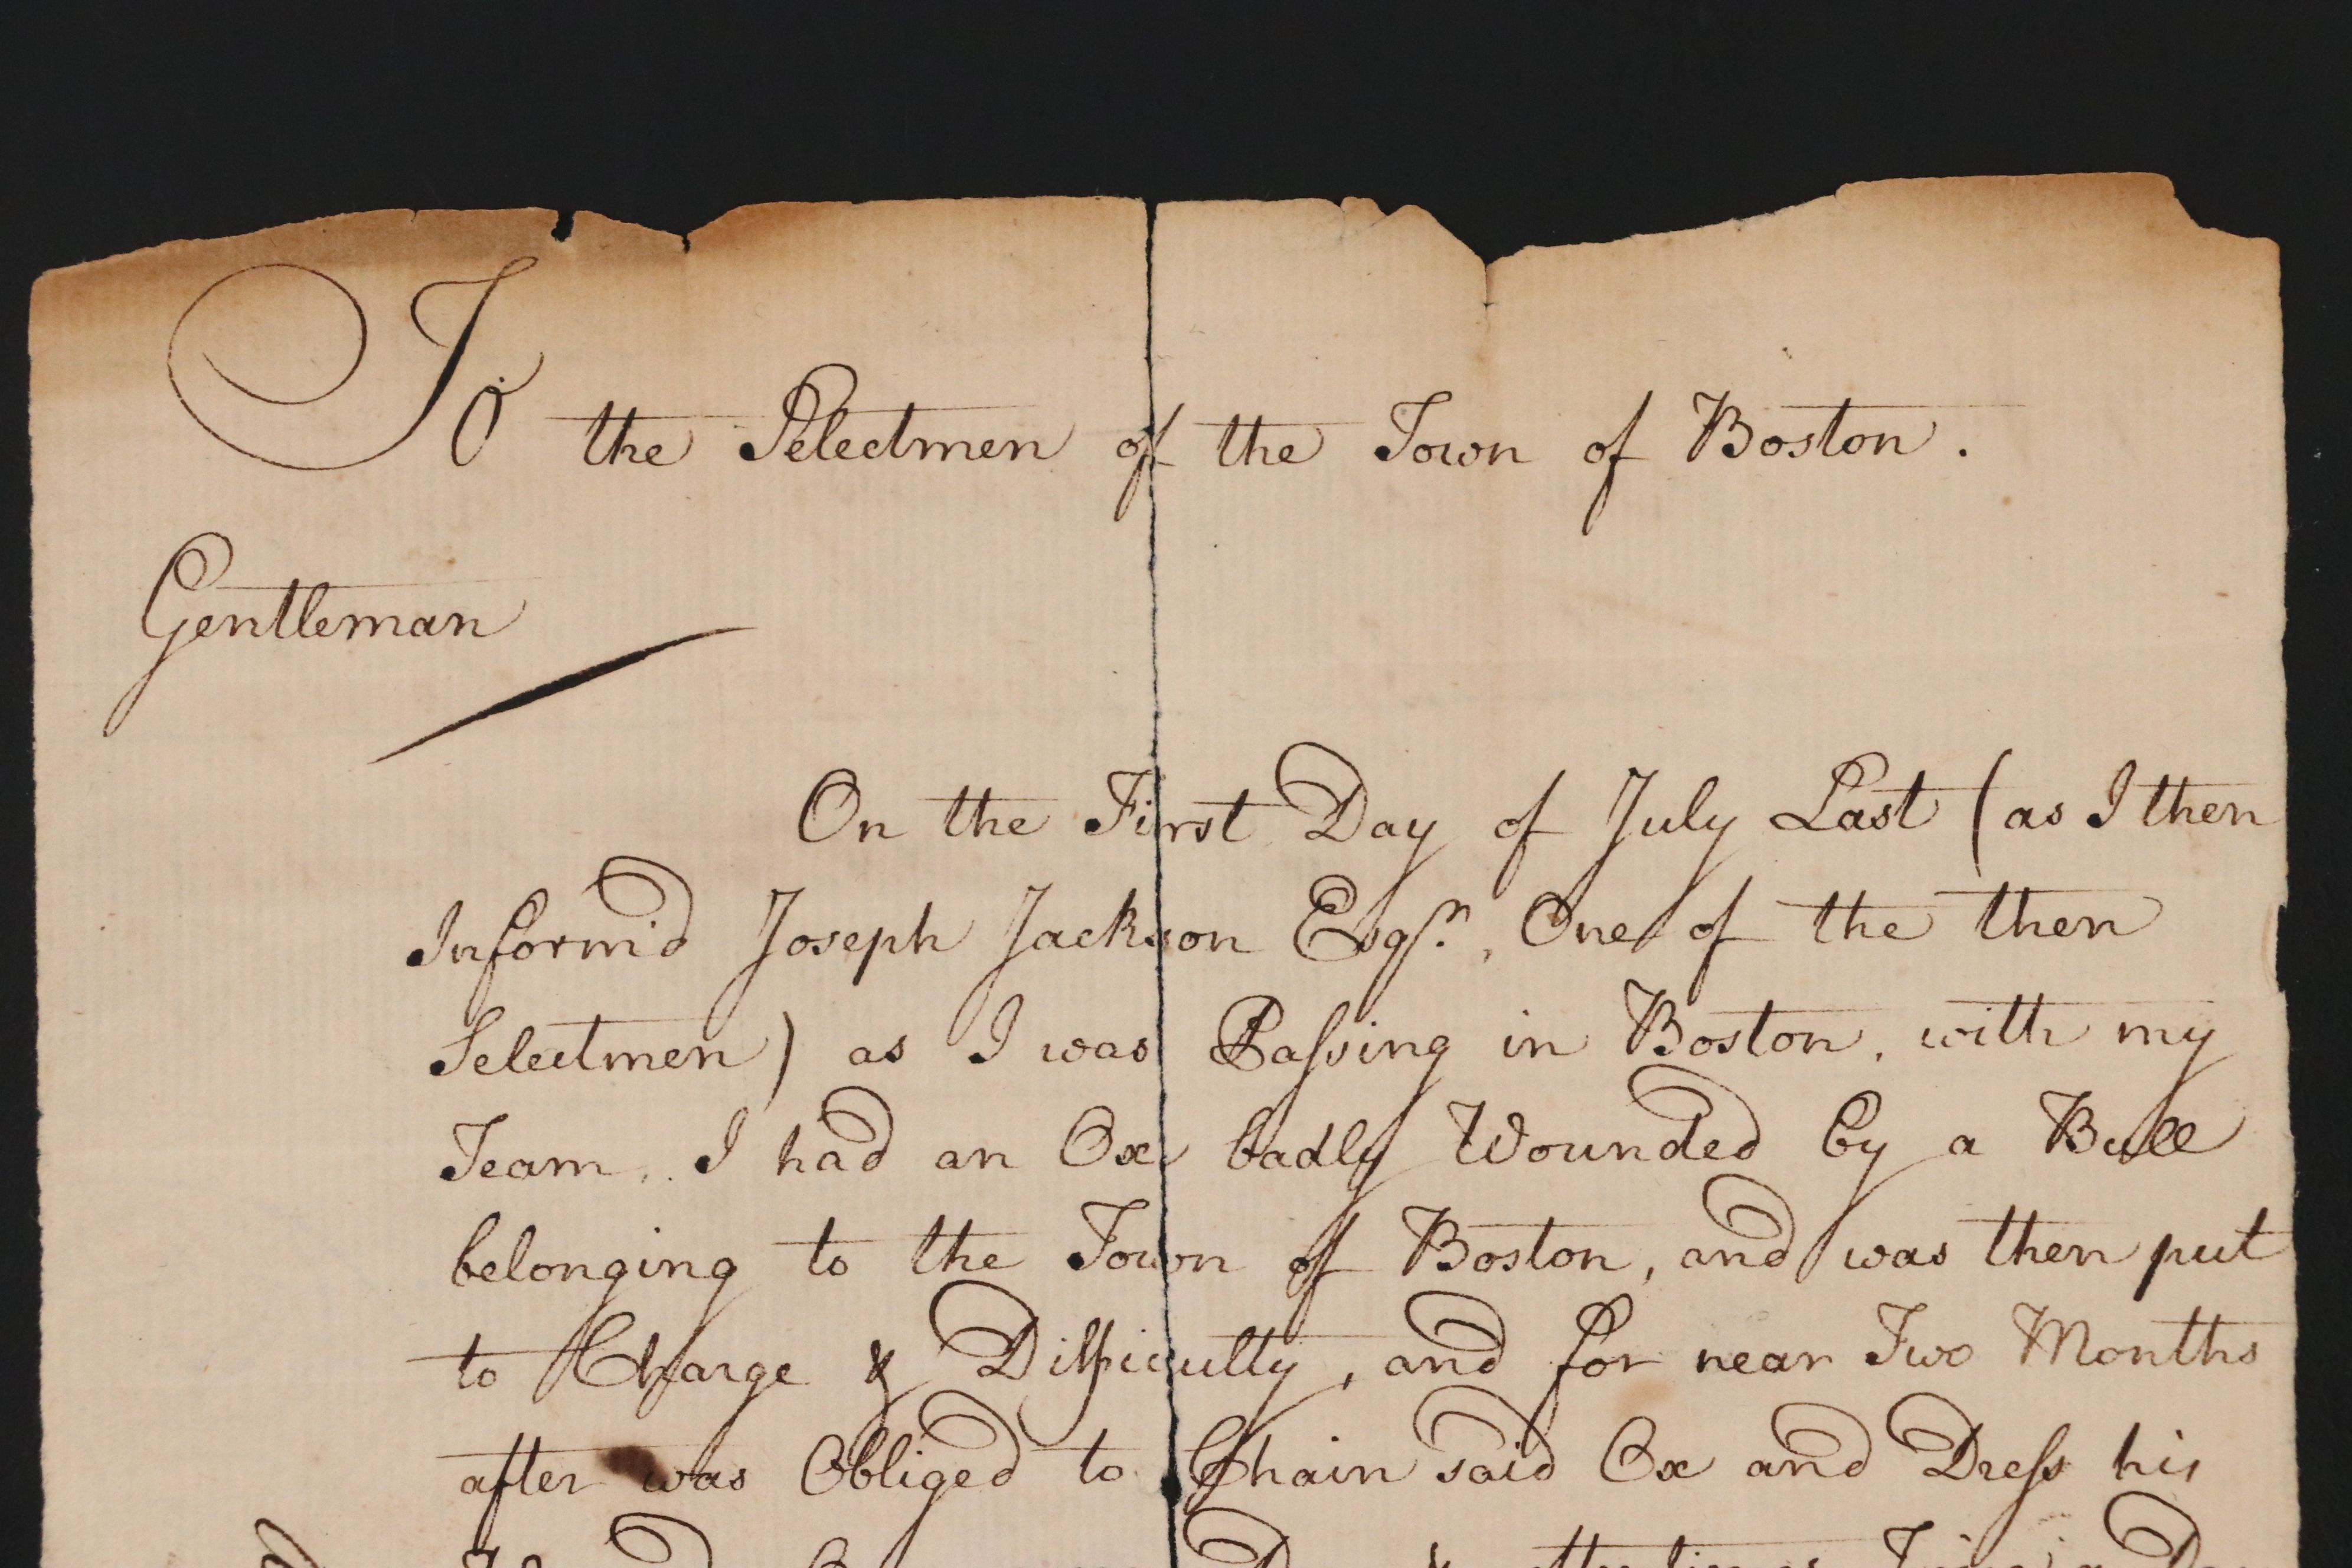 To the Selectmen of the Town of Boston.
Gentleman
On the First Day of July Last (as I then
Inform'd Joseph Jackson Esqr., One of the then
Selectmen) as I was Paſsing in Boston, with my
Team, I had an Ox badly Wounded by a Bull
belonging to the Town of Boston, and was then put
to Charge & Difficulty, and for near Two Months
after was Obliged to Chain said Ox and Dreſs his